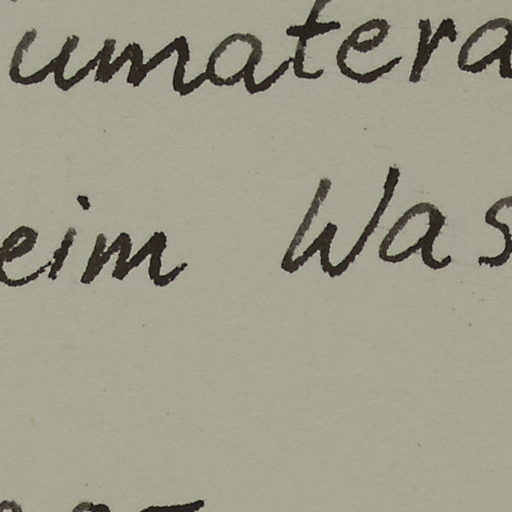 umatera
eim Was